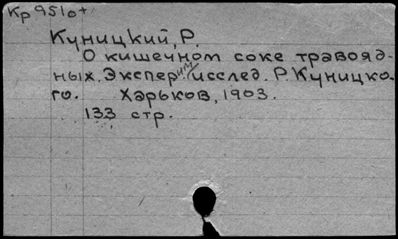 Кр 951о+
Куницкий, Р.
О кишечном соке травояд-
ных. Экспер им исслед. Р. Куницко-
го. Харьков, 1903.
133 стр.